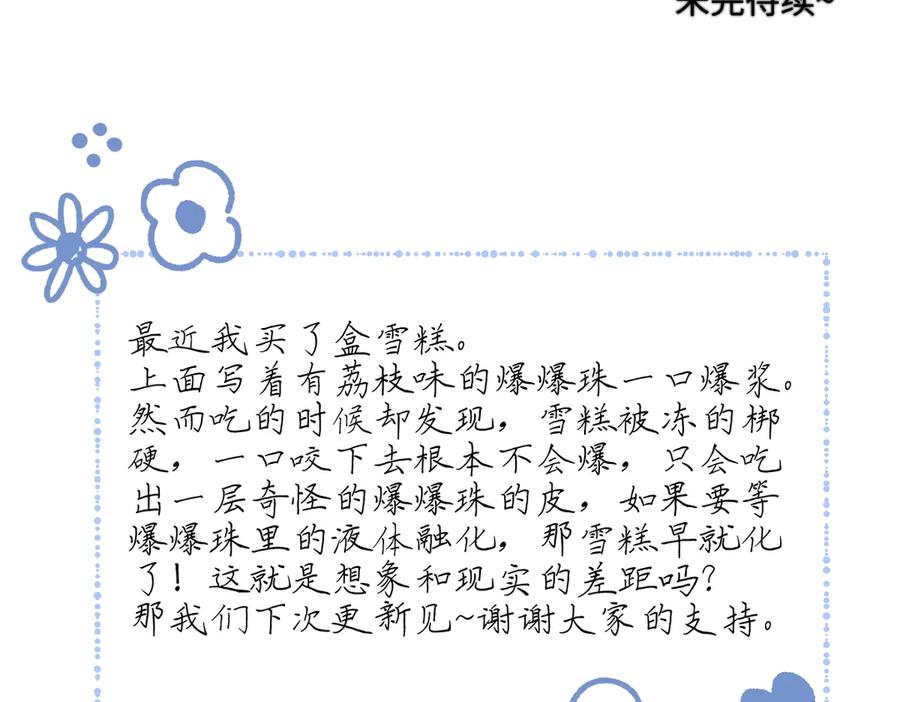 未完待续~
最近我买了盒雪糕。
上面写着有荔枝味的爆爆珠一口爆浆。
然而吃的时候却发现，雪糕被冻的梆
硬，一口咬下去根本不会爆，只会吃
出一层奇怪的爆爆珠的皮，如果要等
爆爆珠里的液体融化，那雪糕早就化
了！这就是想象和现实的差距吗？
那我们下次更新见~谢谢大家的支持。